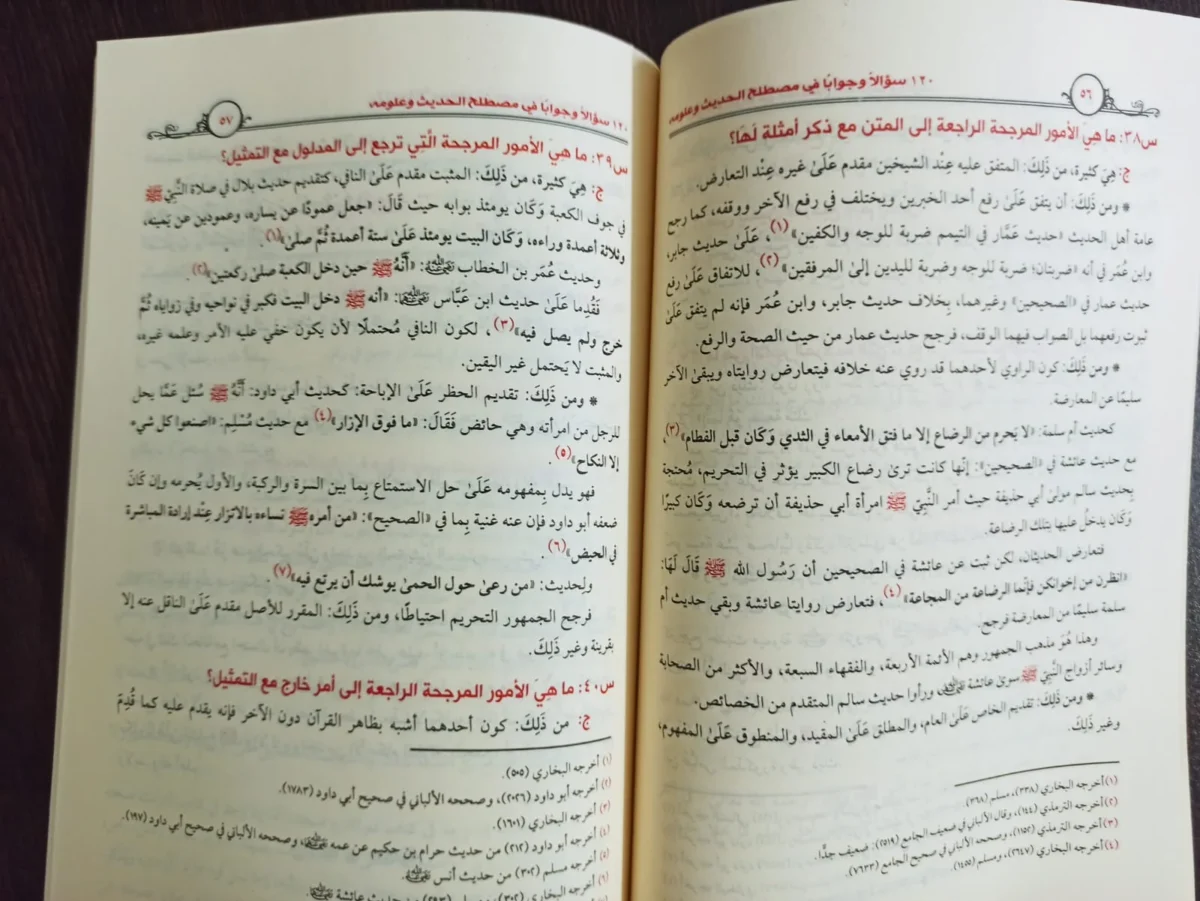 ١٢٠ سؤالاً وجوابًا في مصطلح الحديث وعلومه
٥٦
س٣٨: ما هِيَ الأمور المرجحة الراجعة إلى المتن مع ذكر أمثلة لَهَا؟
ج: هِيَ كثيرة، من ذَلِكَ: المتفق عليه عِنْد الشيخين مقدم عَلَىٰ غيره عِنْد التعارض.
* ومن ذَلِكَ: أن يتفق عَلَىٰ رفع أحد الخبرين ويختلف في رفع الآخر ووقفه، كما رجح
عامة أهل الحديث «حديث عَمَّار في التيمم ضربة للوجه والكفين»(١)، عَلَىٰ حديث جابر،
وابن عُمَر في أنه «ضربتان؛ ضربة للوجه وضربة لليدين إلىٰ المرفقين»(٢)، للاتفاق عَلَىٰ رفع
حديث عمار في «الصحيحين» وغيرهما، بِخلاف حديث جابر، وابن عُمَر فإنه لم يتفق عَلَىٰ
ثبوت رفعهما بل الصواب فيهما الوقف، فرجح حديث عمار من حيث الصحة والرفع.
* ومن ذَلِكَ: كون الراوي لأحدهما قد روي عنه خلافه فيتعارض روايتاه ويبقىٰ الآخر
سليمًا عن المعارضة.
كحديث أم سلمة: «لا يَحرم من الرضاع إلا ما فتق الأمعاء في الثدي وَكَان قبل الفطام»(٣)،
مع حديث عائشة في «الصحيحين»: إنَّها كانت ترىٰ رضاع الكبير يؤثر في التحريم، مُحتجة
بِحديث سالم مولىٰ أبي حذيفة حيث أمر النَّبِيّ ﷺ امرأة أبي حذيفة أن ترضعه وَكَان كبيرًا
وَكَان يدخلُ عليها بتلك الرضاعة.
فتعارض الحديثان، لكن ثبت عن عائشة في الصحيحين أن رَسُول الله ﷺ قَالَ لَهَا:
«انظرن من إخوانكن فإنَّما الرضاعة من المجاعة»(٤)، فتعارض روايتا عائشة وبقي حديث أم
سلمة سليمًا من المعارضة فرجح.
وهذا هُوَ مذهب الجمهور وهم الأئمة الأربعة، والفقهاء السبعة، والأكثر من الصحابة
وسائر أزواج النَّبِيّ ﷺ سوىٰ عائشة رضي الله عنها ورأوا حديث سالم المتقدم من الخصائص.
* ومن ذَلِكَ: تقديم الخاص عَلَىٰ العام، والمطلق عَلَىٰ المقيد، والمنطوق عَلَىٰ المفهوم،
وغير ذَلِكَ.
(١) أخرجه البخاري (٣٣٨)، مسلم (٣٦٨).
(٢) أخرجه الترمذي (١٤٤)، وقال الألباني في ضعيف الجامع (٢٥١٩): ضعيف جدًّا.
(٣) أخرجه الترمذي (١١٥٢)، وصححه الألباني في صحيح الجامع (٧٦٣٣).
(٤) أخرجه البخاري (٢٦٤٧)، ومسلم (١٤٥٥).
١٢٠ سؤالاً وجوابًا في مصطلح الحديث وعلومه
٥٧
س٣٩: ما هِيَ الأمور المرجحة الَّتِي ترجع إلى المدلول مع التمثيل؟
ج: هِيَ كثيرة، من ذَلِكَ: المثبت مقدم عَلَىٰ النافي، كتقديم حديث بلال في صلاة النَّبِيّ ﷺ
في جوف الكعبة وَكَان يومئذ بوابه حيث قَالَ: «جعل عمودًا عن يساره، وعمودين عن يَمينه،
وثلاثة أعمدة وراءه، وَكَان البيت يومئذ عَلَىٰ ستة أعمدة ثُمَّ صلىٰ»(١).
وحديث عُمَر بن الخطاب رضي الله عنه: «أَنَّهُ ﷺ حين دخل الكعبة صلىٰ ركعتين»(٢).
فَقُدِما عَلَىٰ حديث ابن عَبَّاس رضي الله عنهما: «أنه ﷺ دخل البيت فكبر في نواحيه وفي زواياه ثُمَّ
خرج ولم يصل فيه»(٣)، لكون النافي مُحتملًا لأن يكون خفي عليه الأمر وعلمه غيره،
والمثبت لا يَحتمل غير اليقين.
* ومن ذَلِكَ: تقديم الحظر عَلَىٰ الإباحة: كحديث أبي داود: أَنَّهُ ﷺ سُئل عَمَّا يحل
للرجل من امرأته وهي حائض فَقَالَ: «ما فوق الإزار»(٤) مع حديث مُسْلِم: «اصنعوا كل شيء
إلا النكاح»(٥).
فهو يدل بِمفهومه عَلَىٰ حل الاستمتاع بِما بين السرة والركبة، والأول يُحرمه وإن كَانَ
ضعفه أبو داود فإن عنه غنية بِما في «الصحيح»: «من أمره ﷺ نساءه بالاتزار عِنْد إرادة المباشرة
في الحيض»(٦).
ولحديث: «من رعىٰ حول الحمىٰ يوشك أن يرتع فيه»(٧).
فرجح الجمهور التحريم احتياطًا، ومن ذَلِكَ: المقرر للأصل مقدم عَلَىٰ الناقل عنه إلا
بقرينة وغير ذَلِكَ.
س٤٠: ما هِيَ الأمور المرجحة الراجعة إلى أمر خارج مع التمثيل؟
ج: من ذَلِكَ: كون أحدهما أشبه بظاهر القرآن دون الآخر فإنه يقدم عليه كما قُدِمَ
(١) أخرجه البخاري (٥٠٥).
(٢) أخرجه أبو داود (٢٠٢٦)، وصححه الألباني في صحيح أبي داود (١٧٨٣).
(٣) أخرجه البخاري (١٦٠١).
(٤) أخرجه أبو داود (٢١٢) من حديث حرام بن حكيم عن عمه رضي الله عنه، وصححه الألباني في صحيح أبي داود (١٩٧).
(٥) أخرجه مسلم (٣٠٢) من حديث أنس رضي الله عنه.
(٦) أخرجه البخاري (٣٠٢)، ومسلم (٢٩٣) من حديث عائشة رضي الله عنها.